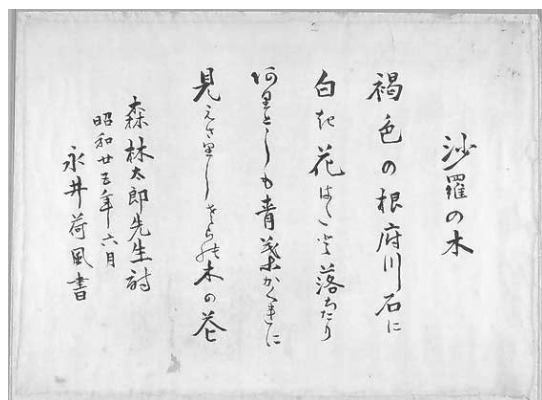 沙羅の木
褐色の根府川石に
白き花はたと落ちたり
ありとしも青葉かくれに
見えさりしさらの木の花
森林太郎先生詩
昭和廿五年六月
永井荷風書